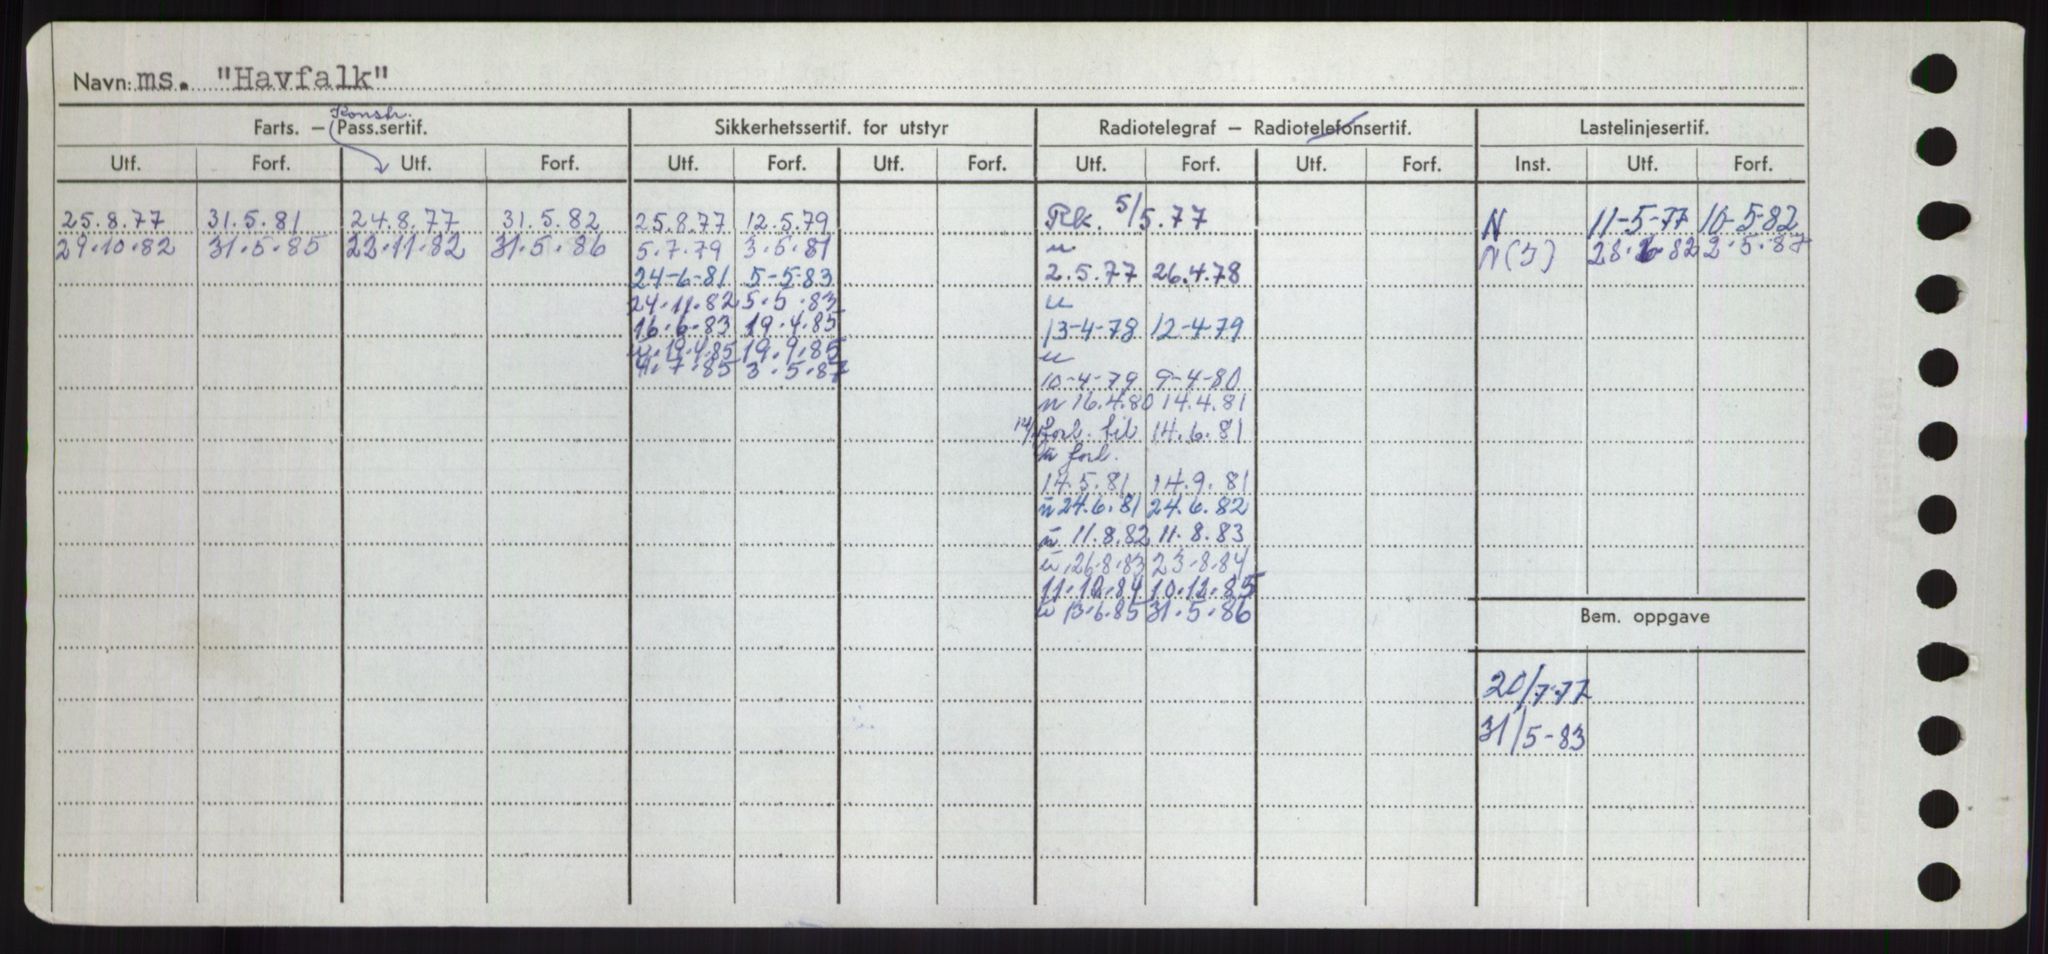 Navn: ms. "Havfalk"
Konstr.
Farts. – Pass.sertif. Sikkerhetssertif. for utstyr Radiotelegraf – Radiotelefonsertif. Lastelinjesertif.
Utf. Forf. Utf. Forf. Utf. Forf. Utf. Forf. Utf. Forf. Utf. Forf. Inst. Utf. Forf.
25.8.77 31.5.81 24.8.77 31.5.82 25.8.77 12.5.79 Rk. 5/5.77 N 11-5-77 10-5-82
29.10.82 31.5.85 22.11.82 31.5.86 5.7.79 3.5.81 u N(J) 28.6-82 2.5.87
24-6-81 5-5-83 2.5.77 26.4.78
24.11.82 5.5.83 u
16.6.83 19.4.85 13-4-78 12-4-79
u.19.4.85 19.9.85 u
4.7.85 3.5.87 10-4-79 9-4-80
u 16.4.80 14.4.81
forl. til 14.6.81
u forl.
14.5.81 14.9.81
u 24.6.81 24.6.82
u 11.8.82 11.8.83
u 26.8.83 23.8.84
11.12.84 10.12.85
u 13.6.85 31.5.86
Bem. oppgave
20/7-77
31/5-83